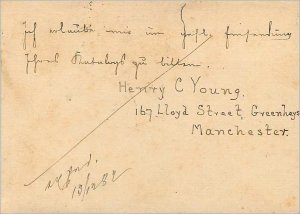 Ich erlaube mir um gefl. Zusendung
Ihres Katalogs zu bitten.
Henry C Young.
167 Lloyd Street, Greenheys
Manchester.
13/12 82